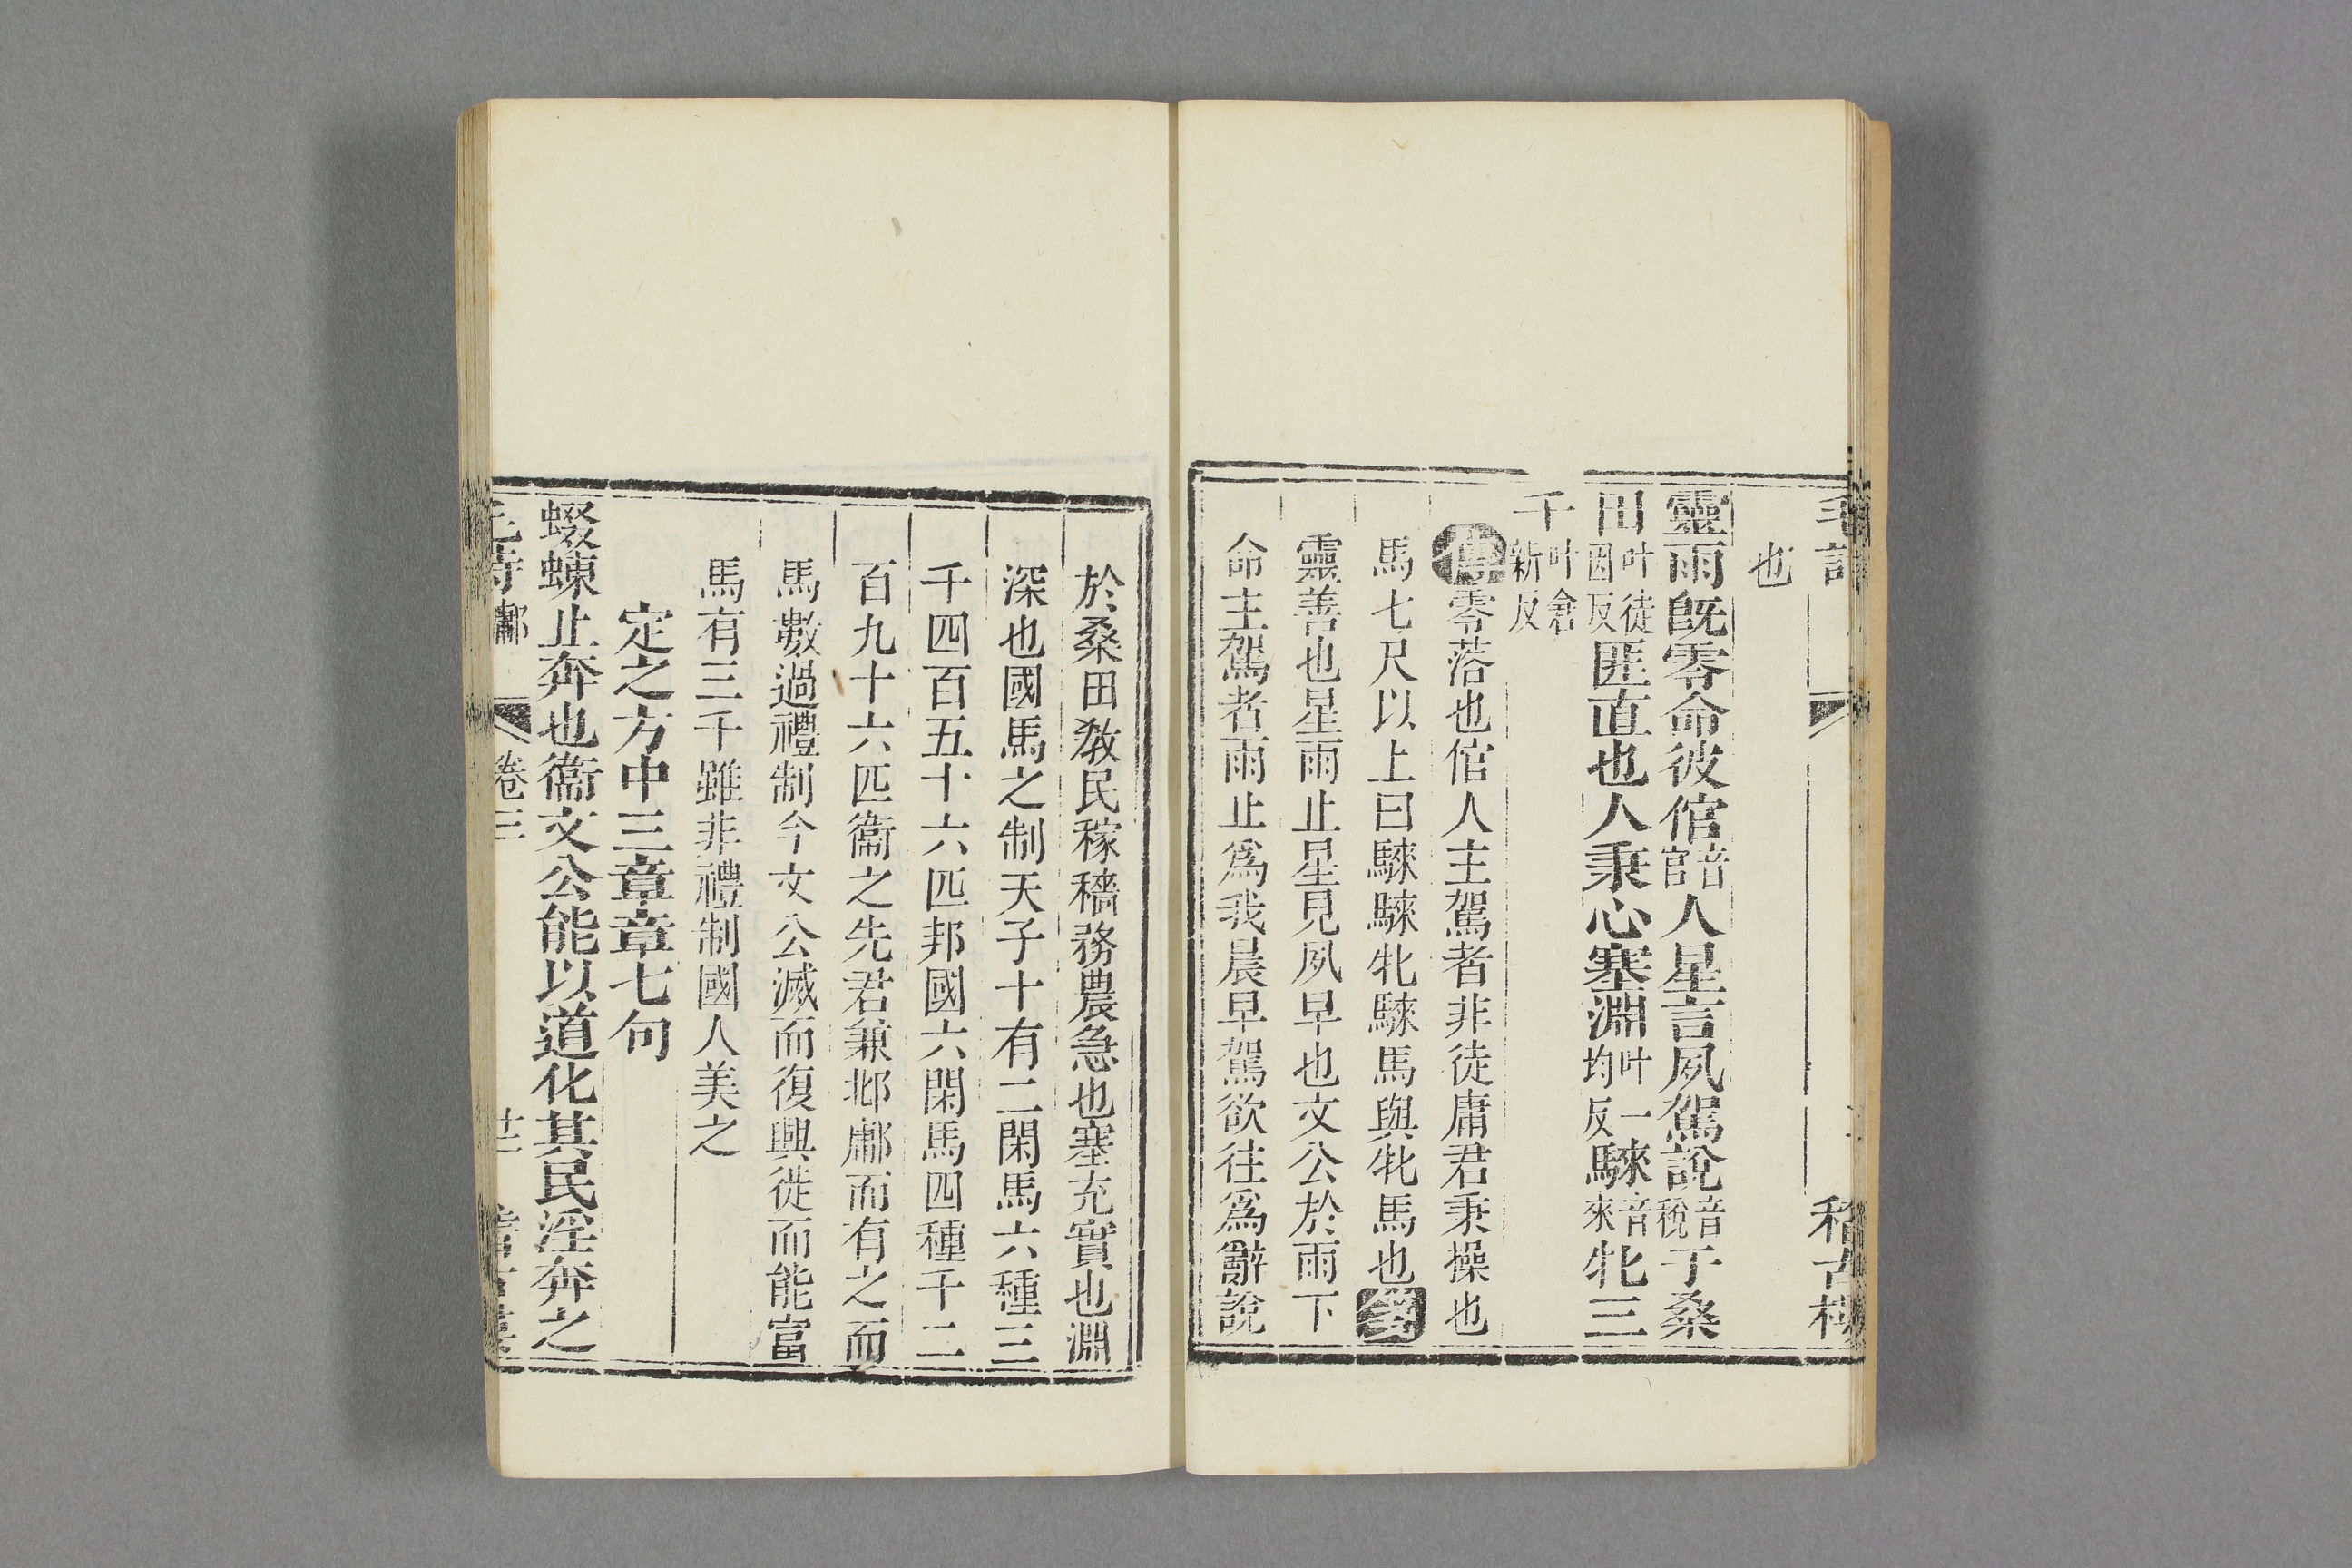 毛詩 稽古樓
也
靈雨既零命彼倌音官人星言夙駕說音稅于桑
田叶徒因反匪直也人秉心塞淵叶一均反騋音來牝三
千叶倉新反
傳零落也倌人主駕者非徒庸君秉操也
馬七尺以上曰騋騋牝騋馬與牝馬也箋
靈善也星雨止星見夙早也文公於雨下
命主駕者雨止爲我晨早駕欲往爲辭說
於桑田敎民稼穡務農急也塞充實也淵
深也國馬之制天子十有二閑馬六種三
千四百五十六匹邦國六閑馬四種千二
百九十六匹衞之先君兼邶鄘而有之而
馬數過禮制今文公滅而復興徙而能富
馬有三千雖非禮制國人美之
定之方中三章章七句
蝃蝀止奔也衞文公能以道化其民淫奔之
毛詩 鄘 卷三 廿二